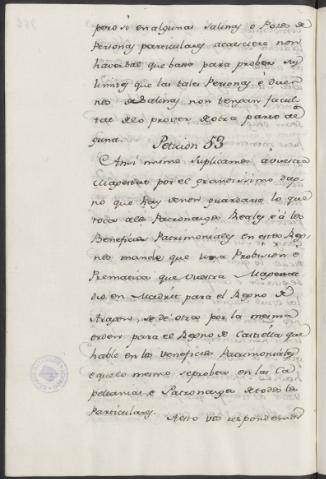 pero si en algunas salinas o Pozos de
Personas particulares acaeciere non
haver sal que basta para probeer sus
limites que las tales Personas e Duen-
nos de Salinas non tengan facul-
tad de lo proveer de otra parte al-
guna.
Peticion 53
Ansi mismo suplicamos a vuestra
Magestad por el grandissimo dap-
no que hay en no guardarse lo que
toca al Patronazgo Reales e a los
Beneficios Patrimoniales en estos Rey-
nos mande que una Probision e
Prematica que vuestra Magestad
dio en Madrit para el Reyno de
Aragon, se dé otra por la mesma
orden para el Reyno de Castiella que
hable en los veneficios Patrimoniales
e que lo mesmo se probea en las Ca-
pellanias e Patronazgos de todos los
Particulares.
A esto vos respondemos